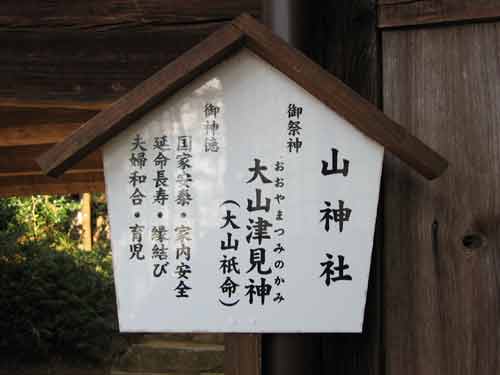 山神社
御祭神
おおやまつみのかみ
大山津見神
(大山祇命)
御神徳
国家安泰・家内安全
延命長寿・縁結び
夫婦和合・育児